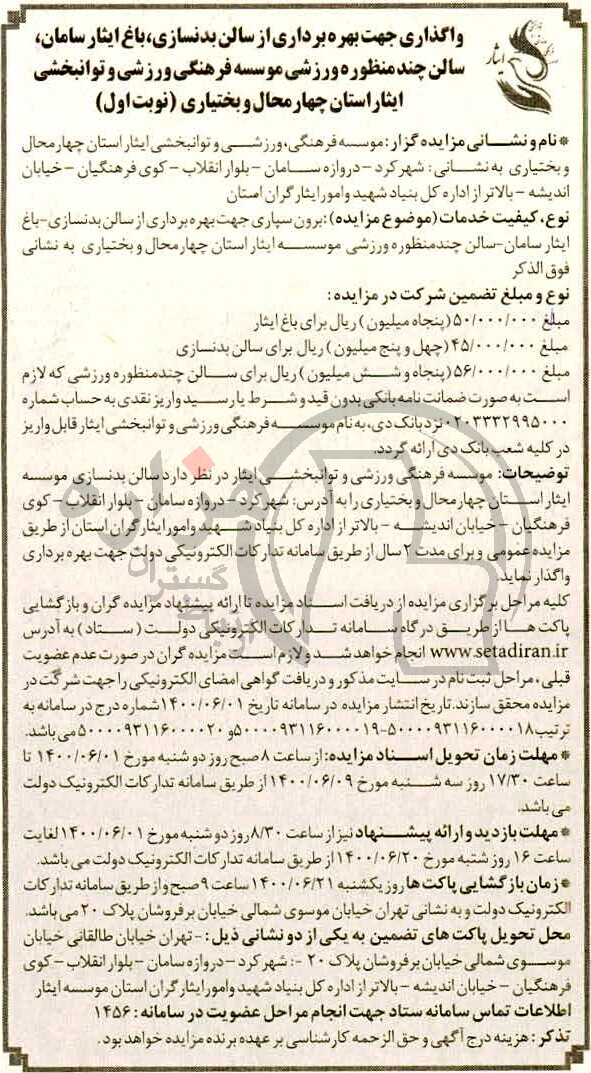 واگذاری جهت بهره برداری از سالن بدنسازی، باغ ایثار سامان،
سالن چند منظوره ورزشی موسسه فرهنگی ورزشی و توانبخشی
ایثار استان چهارمحال و بختیاری (نوبت اول)
ایثار
* نام و نشانی مزایده گزار: موسسه فرهنگی، ورزشی و توانبخشی ایثار استان چهارمحال
و بختیاری به نشانی: شهرکرد - دروازه سامان - بلوار انقلاب - کوی فرهنگیان - خیابان
اندیشه - بالاتر از اداره کل بنیاد شهید و امور ایثارگران استان
نوع، کیفیت خدمات (موضوع مزایده): برون سپاری جهت بهره برداری از سالن بدنسازی-باغ
ایثار سامان-سالن چندمنظوره ورزشی موسسه ایثار استان چهارمحال و بختیاری به نشانی
فوق الذکر
نوع و مبلغ تضمین شرکت در مزایده:
مبلغ ۵۰/۰۰۰/۰۰۰ (پنجاه میلیون) ریال برای باغ ایثار
مبلغ ۴۵/۰۰۰/۰۰۰ (چهل و پنج میلیون) ریال برای سالن بدنسازی
مبلغ ۵۶/۰۰۰/۰۰۰ (پنجاه و شش میلیون) ریال برای سالن چندمنظوره ورزشی که لازم
است به صورت ضمانت نامه بانکی بدون قید و شرط یا رسید واریز نقدی به حساب شماره
۰۲۰۳۳۳۲۹۹۵۰۰۰ نزد بانک دی، به نام موسسه فرهنگی ورزشی و توانبخشی ایثار قابل واریز
در کلیه شعب بانک دی ارائه گردد.
توضیحات: موسسه فرهنگی ورزشی و توانبخشی ایثار در نظر دارد سالن بدنسازی موسسه
ایثار استان چهارمحال و بختیاری را به آدرس: شهرکرد - دروازه سامان - بلوار انقلاب - کوی
فرهنگیان - خیابان اندیشه - بالاتر از اداره کل بنیاد شهید و امور ایثارگران استان از طریق
مزایده عمومی و برای مدت ۲ سال از طریق سامانه تدارکات الکترونیکی دولت جهت بهره برداری
واگذار نماید.
کلیه مراحل برگزاری مزایده از دریافت اسناد مزایده تا ارائه پیشنهاد مزایده گران و بازگشایی
پاکت ها از طریق درگاه سامانه تدارکات الکترونیکی دولت (ستاد) به آدرس
www.setadiran.ir انجام خواهد شد و لازم است مزایده گران در صورت عدم عضویت
قبلی، مراحل ثبت نام در سایت مذکور و دریافت گواهی امضای الکترونیکی را جهت شرکت در
مزایده محقق سازند. تاریخ انتشار مزایده در سامانه تاریخ ۱۴۰۰/۰۶/۰۱ شماره درج در سامانه به
ترتیب ۵۰۰۰۰۹۳۱۱۶۰۰۰۰۱۸-۵۰۰۰۰۹۳۱۱۶۰۰۰۰۱۹ و ۵۰۰۰۰۹۳۱۱۶۰۰۰۰۲۰ می باشد.
* مهلت زمان تحویل اسناد مزایده: از ساعت ۸ صبح روز دو شنبه مورخ ۱۴۰۰/۰۶/۰۱ تا
ساعت ۱۷/۳۰ روز سه شنبه مورخ ۱۴۰۰/۰۶/۰۹ از طریق سامانه تدارکات الکترونیک دولت
می باشد.
* مهلت بازدید و ارائه پیشنهاد نیز از ساعت ۸/۳۰ روز دو شنبه مورخ ۱۴۰۰/۰۶/۰۱ لغایت
ساعت ۱۶ روز شنبه مورخ ۱۴۰۰/۰۶/۲۰ از طریق سامانه تدارکات الکترونیک دولت می باشد.
* زمان بازگشایی پاکت ها روز یکشنبه ۱۴۰۰/۰۶/۲۱ ساعت ۹ صبح و از طریق سامانه تدارکات
الکترونیک دولت و به نشانی تهران خیابان موسوی شمالی خیابان برفروشان پلاک ۲۰ می باشد.
محل تحویل پاکت های تضمین به یکی از دو نشانی ذیل: - تهران خیابان طالقانی خیابان
موسوی شمالی خیابان برفروشان پلاک ۲۰ -: شهرکرد - دروازه سامان - بلوار انقلاب - کوی
فرهنگیان - خیابان اندیشه - بالاتر از اداره کل بنیاد شهید و امور ایثارگران استان موسسه ایثار
اطلاعات تماس سامانه ستاد جهت انجام مراحل عضویت در سامانه: ۱۴۵۶
تذکر: هزینه درج آگهی و حق الزحمه کارشناسی بر عهده برنده مزایده خواهد بود.